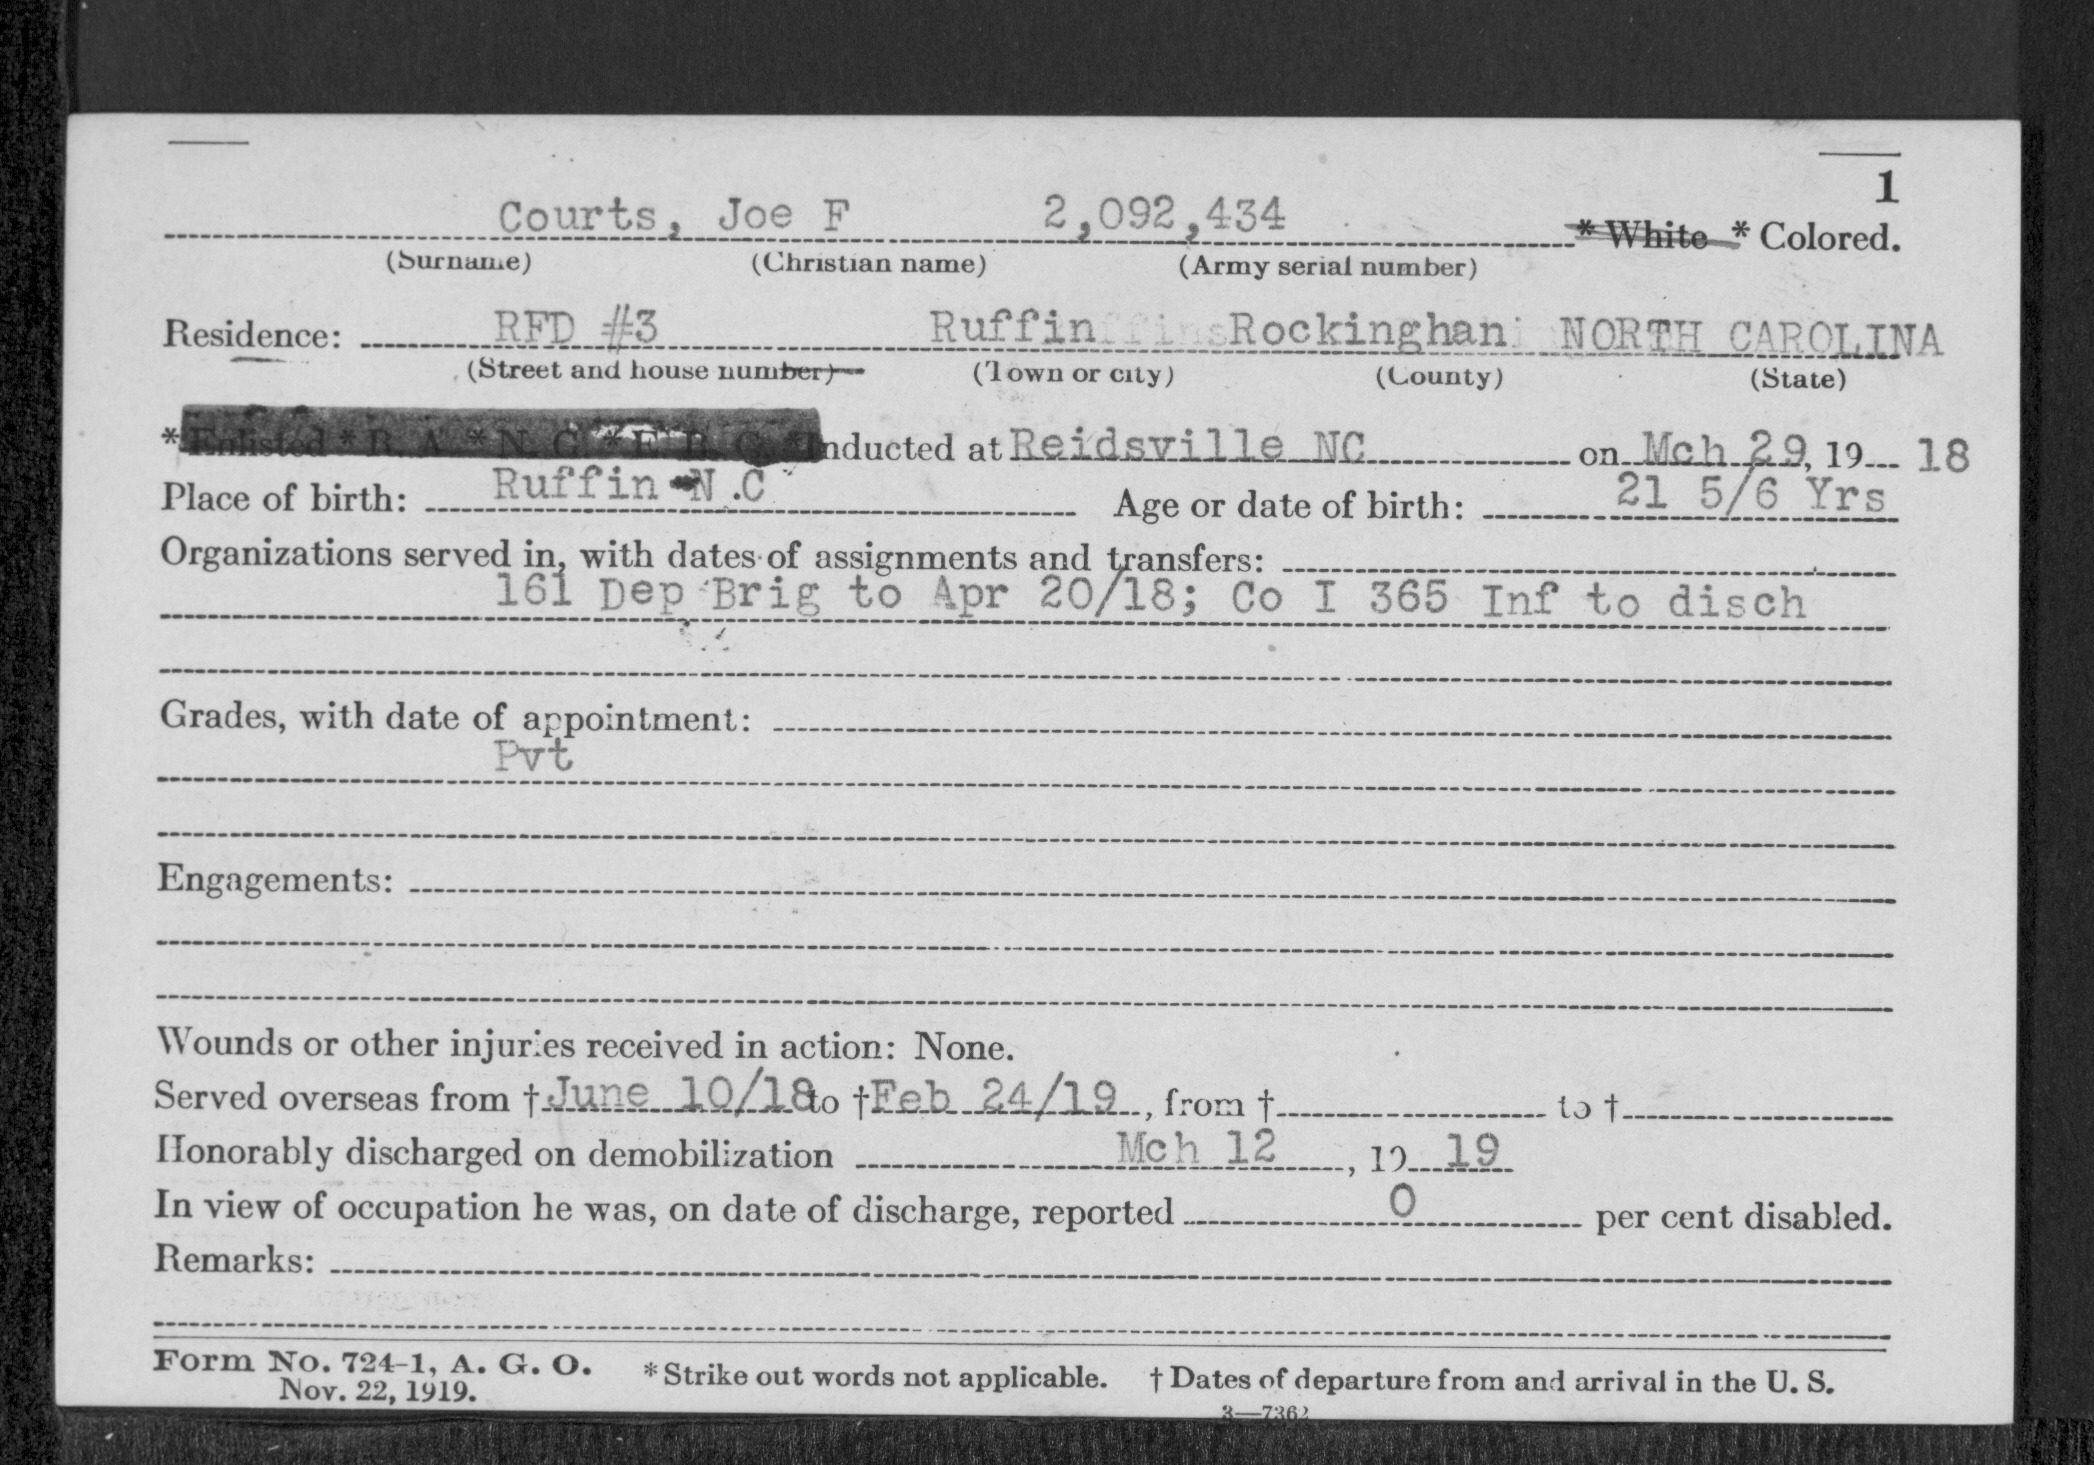 1
Courts, Joe F 2,092,434 * White * Colored.
(Surname) (Christian name) (Army serial number)
Residence: RFD #3 Ruffin Rockinghan NORTH CAROLINA
(Street and house number) (Town or city) (County) (State)
* Enlisted * R. A. * N. G. * E. R. C. * Inducted at Reidsville NC on Mch 29, 19 18
Place of birth: Ruffin N.C Age or date of birth: 21 5/6 Yrs
Organizations served in, with dates of assignments and transfers:
161 Dep Brig to Apr 20/18; Co I 365 Inf to disch
Grades, with date of appointment:
Pvt
Engagements:
Wounds or other injuries received in action: None.
Served overseas from † June 10/18 to † Feb 24/19, from † to †
Honorably discharged on demobilization Mch 12, 19 19
In view of occupation he was, on date of discharge, reported 0 per cent disabled.
Remarks:
Form No. 724-1, A. G. O. * Strike out words not applicable. † Dates of departure from and arrival in the U. S.
Nov. 22, 1919.
3—7362